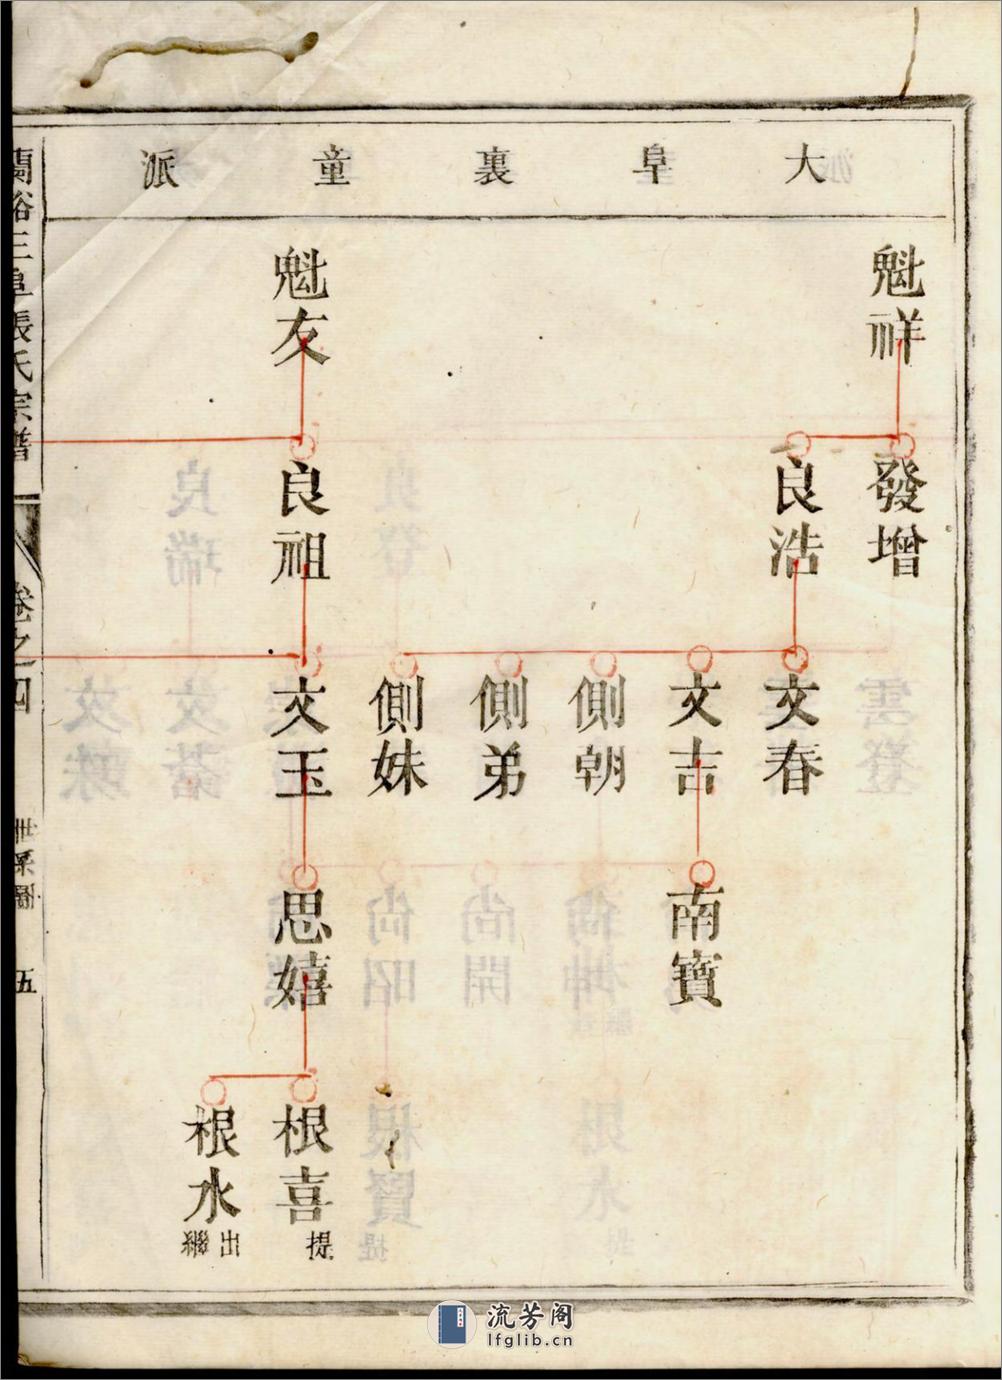 大阜裏童派
魁祥
魁友
發增
良浩
良祖
文春
文吉
側朝
側弟
側妹
文玉
南寶
思嬉
根喜
提
根水
出繼
蘭谿三阜張氏宗譜
卷之四
世系圖
五
流芳阁
lfglib.cn